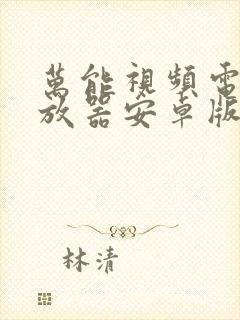 萬能視頻電
放器安卓版
林清